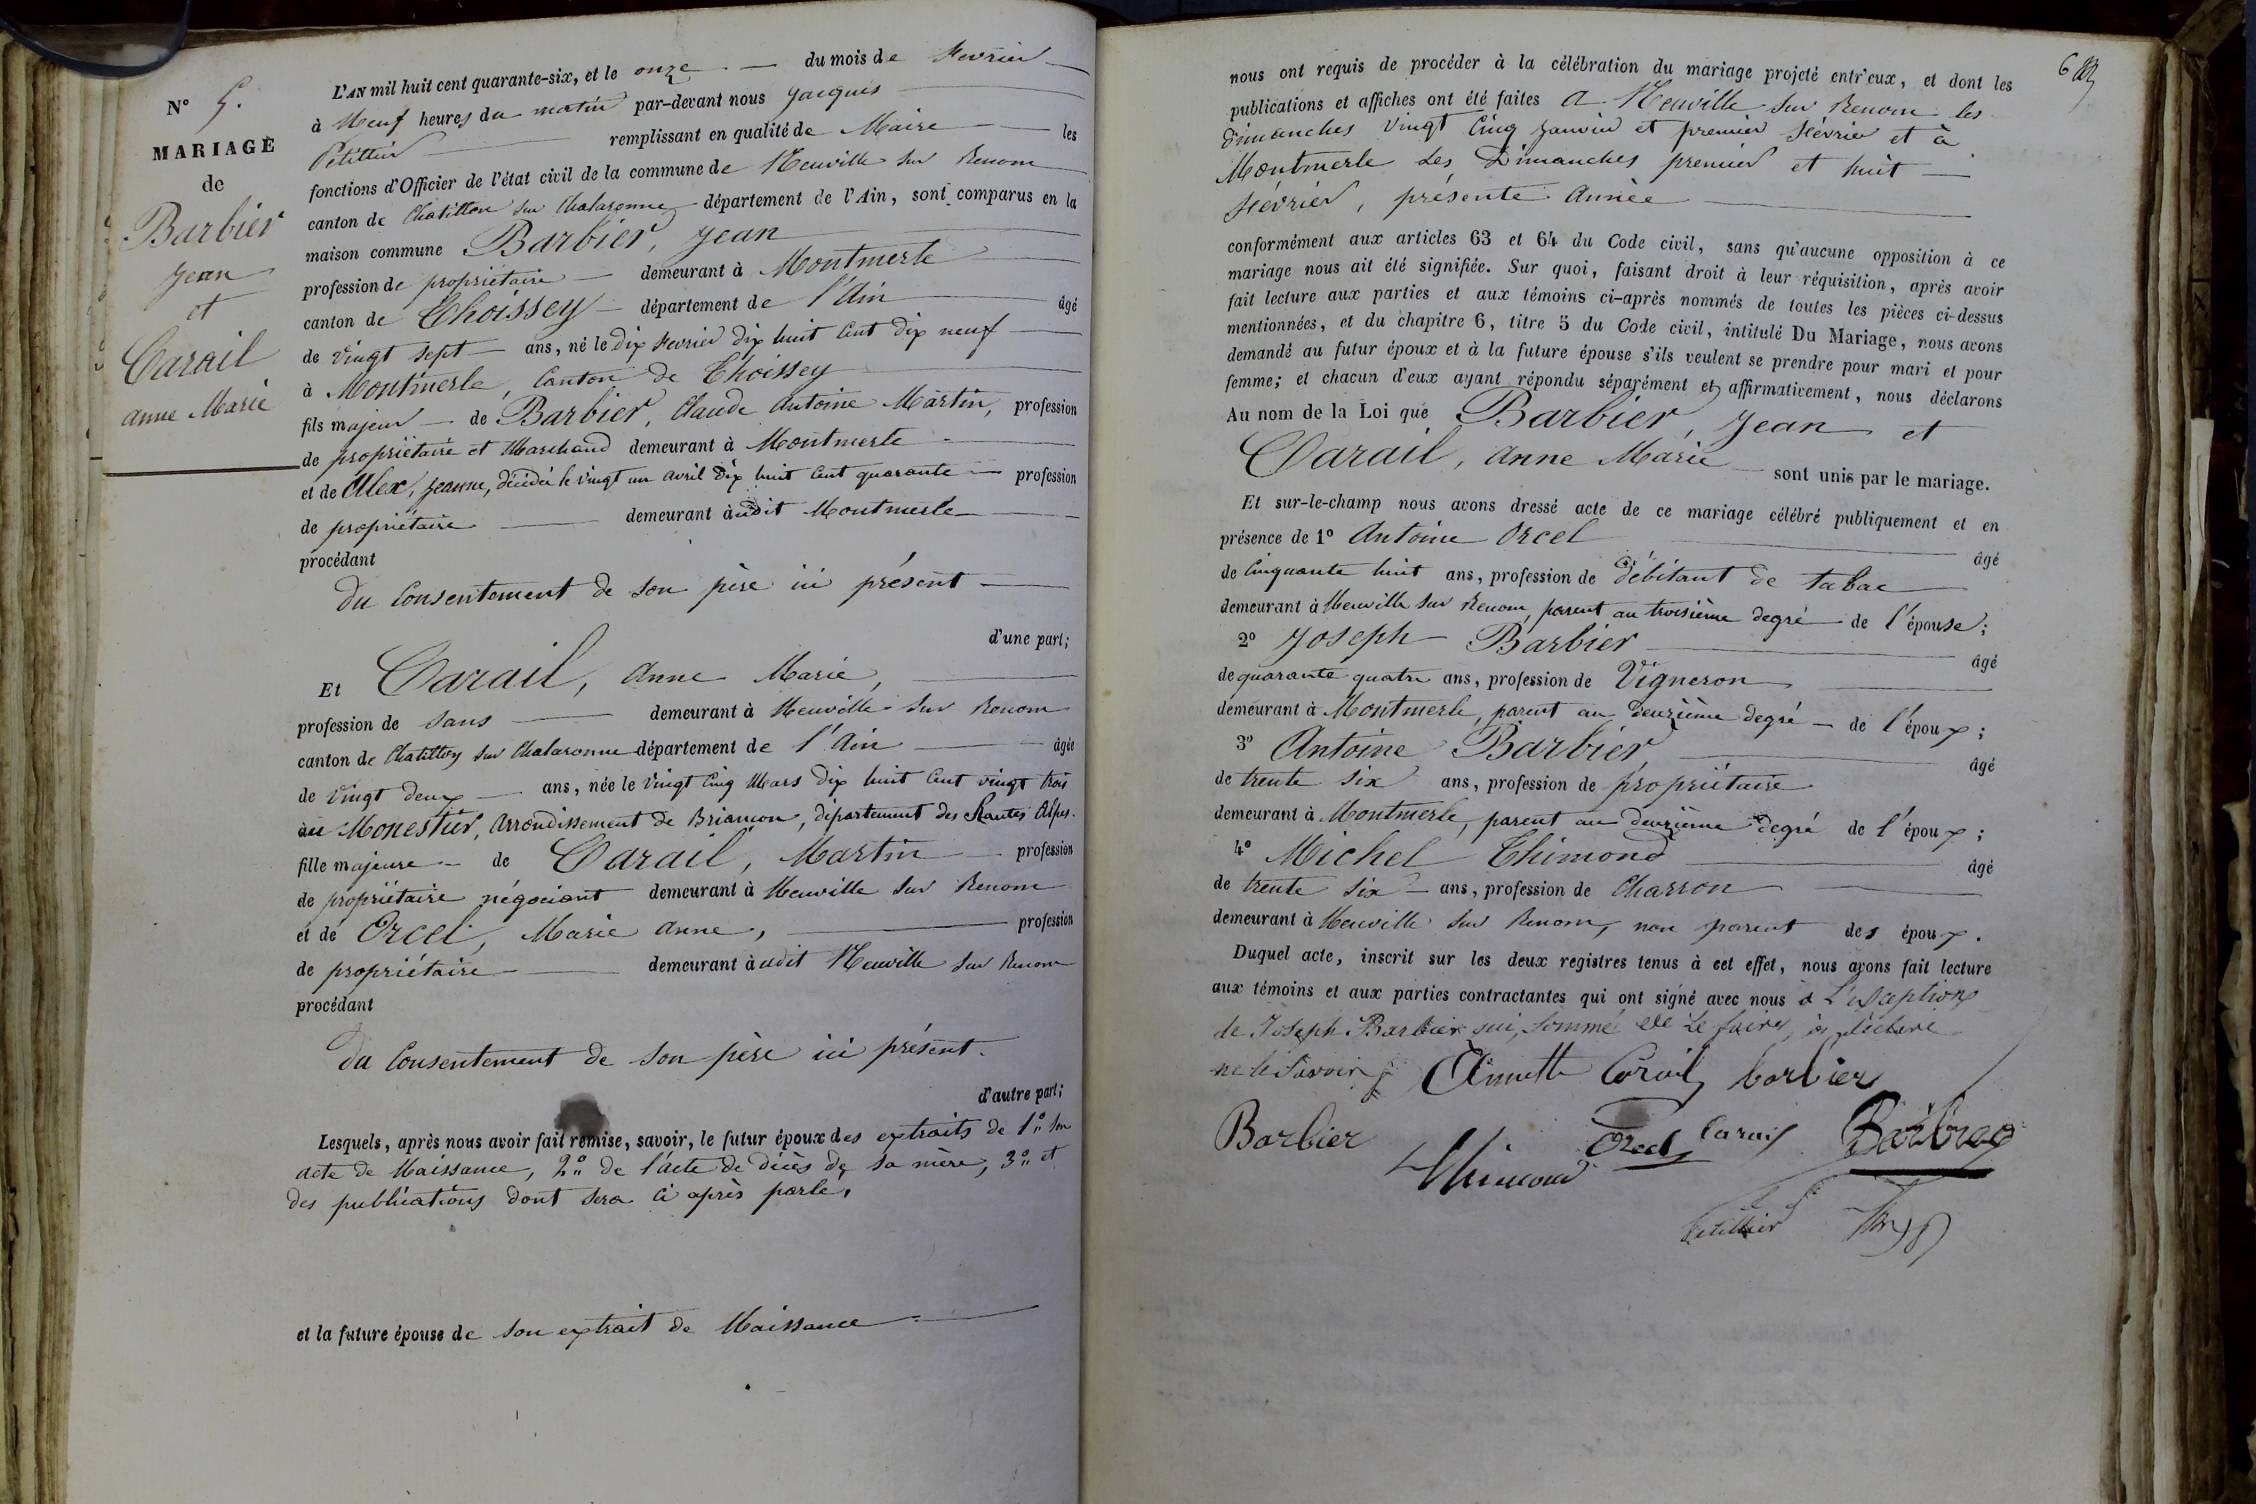 N° 5.
MARIAGE
de
Barbier
Jean
et
Carail
anne Marie
L'AN mil huit cent quarante-six, et le onze du mois de fevrier
à Neuf heures du matin par-devant nous Jacques
remplissant en qualité de Maire les
fonctions d'Officier de l'état civil de la commune de Neuville sur Renom
canton de Chatillon sur Chalaronne département de l'Ain, sont comparus en la
maison commune Barbier, Jean
profession de propriétaire demeurant à Montmerle
canton de Thoissey département de l'Ain âgé
de vingt sept ans, né le dix fevrier dix huit cent dix neuf
à Montmerle, Canton de Thoissey
fils majeur de Barbier, Claude Antoine Martin, profession
de propriétaire et Marchand demeurant à Montmerle
et de Alex, Jeanne, décédée le vingt un avril dix huit cent quarante profession
de propriétaire demeurant audit Montmerle
procédant
du Consentement de son père ici présent
d'une part;
Et Carail, Anne Marie,
profession de sans demeurant à Neuville sur Renom
canton de Chatillon sur Chalaronne département de l'Ain âgée
de vingt deux ans, née le vingt cinq Mars dix huit cent vingt trois
au Monestier, arrondissement de Briancon, département des hautes Alpes.
fille majeure de Carail, Martin profession
de propriétaire négociant demeurant à Neuville sur Renom
et de Orcel, Marie anne, profession
de propriétaire demeurant audit Neuville sur Renom
procédant
du Consentement de son père ici présent.
d'autre part;
Lesquels, après nous avoir fait remise, savoir, le futur époux des extraits de 1° son
acte de Naissance, 2° de l'acte de décès de sa mère, 3° et
des publications dont sera ci après parlé,
et la future épouse de son extrait de Naissance
6
nous ont requis de procéder à la célébration du mariage projeté entr'eux, et dont les
publications et affiches ont été faites a Neuville sur Renom les
dimanches vingt cinq janvier et premier février et à
Montmerle les Dimanches premier et huit
février, présente Année
conformément aux articles 63 et 64 du Code civil, sans qu'aucune opposition à ce
mariage nous ait été signifiée. Sur quoi, faisant droit à leur réquisition, après avoir
fait lecture aux parties et aux témoins ci-après nommés de toutes les pièces ci-dessus
mentionnées, et du chapitre 6, titre 5 du Code civil, intitulé Du Mariage, nous avons
demandé au futur époux et à la future épouse s'ils veulent se prendre pour mari et pour
femme; et chacun d'eux ayant répondu séparément et affirmativement, nous déclarons
Au nom de la Loi que Barbier, Jean et
Carail, Anne Marie sont unis par le mariage.
Et sur-le-champ nous avons dressé acte de ce mariage célébré publiquement et en
présence de 1° Antoine Orcel âgé
de Cinquante huit ans, profession de débitant de tabac
demeurant à Neuville sur Renom, parent au troisième degré de l'épouse;
2° Joseph Barbier âgé
de quarante quatre ans, profession de Vigneron
demeurant à Montmerle, parent au deuxième degré de l'époux;
3° Antoine Barbier âgé
de trente six ans, profession de propriétaire
demeurant à Montmerle, parent au deuxième degré de l'époux;
4° Michel Thimond âgé
de trente six ans, profession de Charron
demeurant à Neuville sur Renom, non parent des époux.
Duquel acte, inscrit sur les deux registres tenus à cet effet, nous avons fait lecture
aux témoins et aux parties contractantes qui ont signé avec nous à l'exception
de Joseph Barbier qui, sommé de le faire, a déclaré
ne le savoir
Annette Carail barbier
Barbier Thimond Orcel Carail Barbier